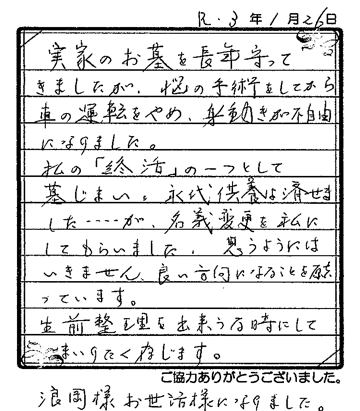 R.3年1月26日
実家のお墓を長年守って
きましたが、脳の手術をしてから
車の運転をやめ、身動きが不自由
になりました。
私の「終活」の一つとして
墓じまい。永代供養は済せま
した……が、名義変更を私に
してもらいました。思うようには
いきません、良い方向になることを願
っています。
生前整理を出来うる時にして
まいりたく存じます。
ご協力ありがとうございました。
浪岡様お世話様になりました。